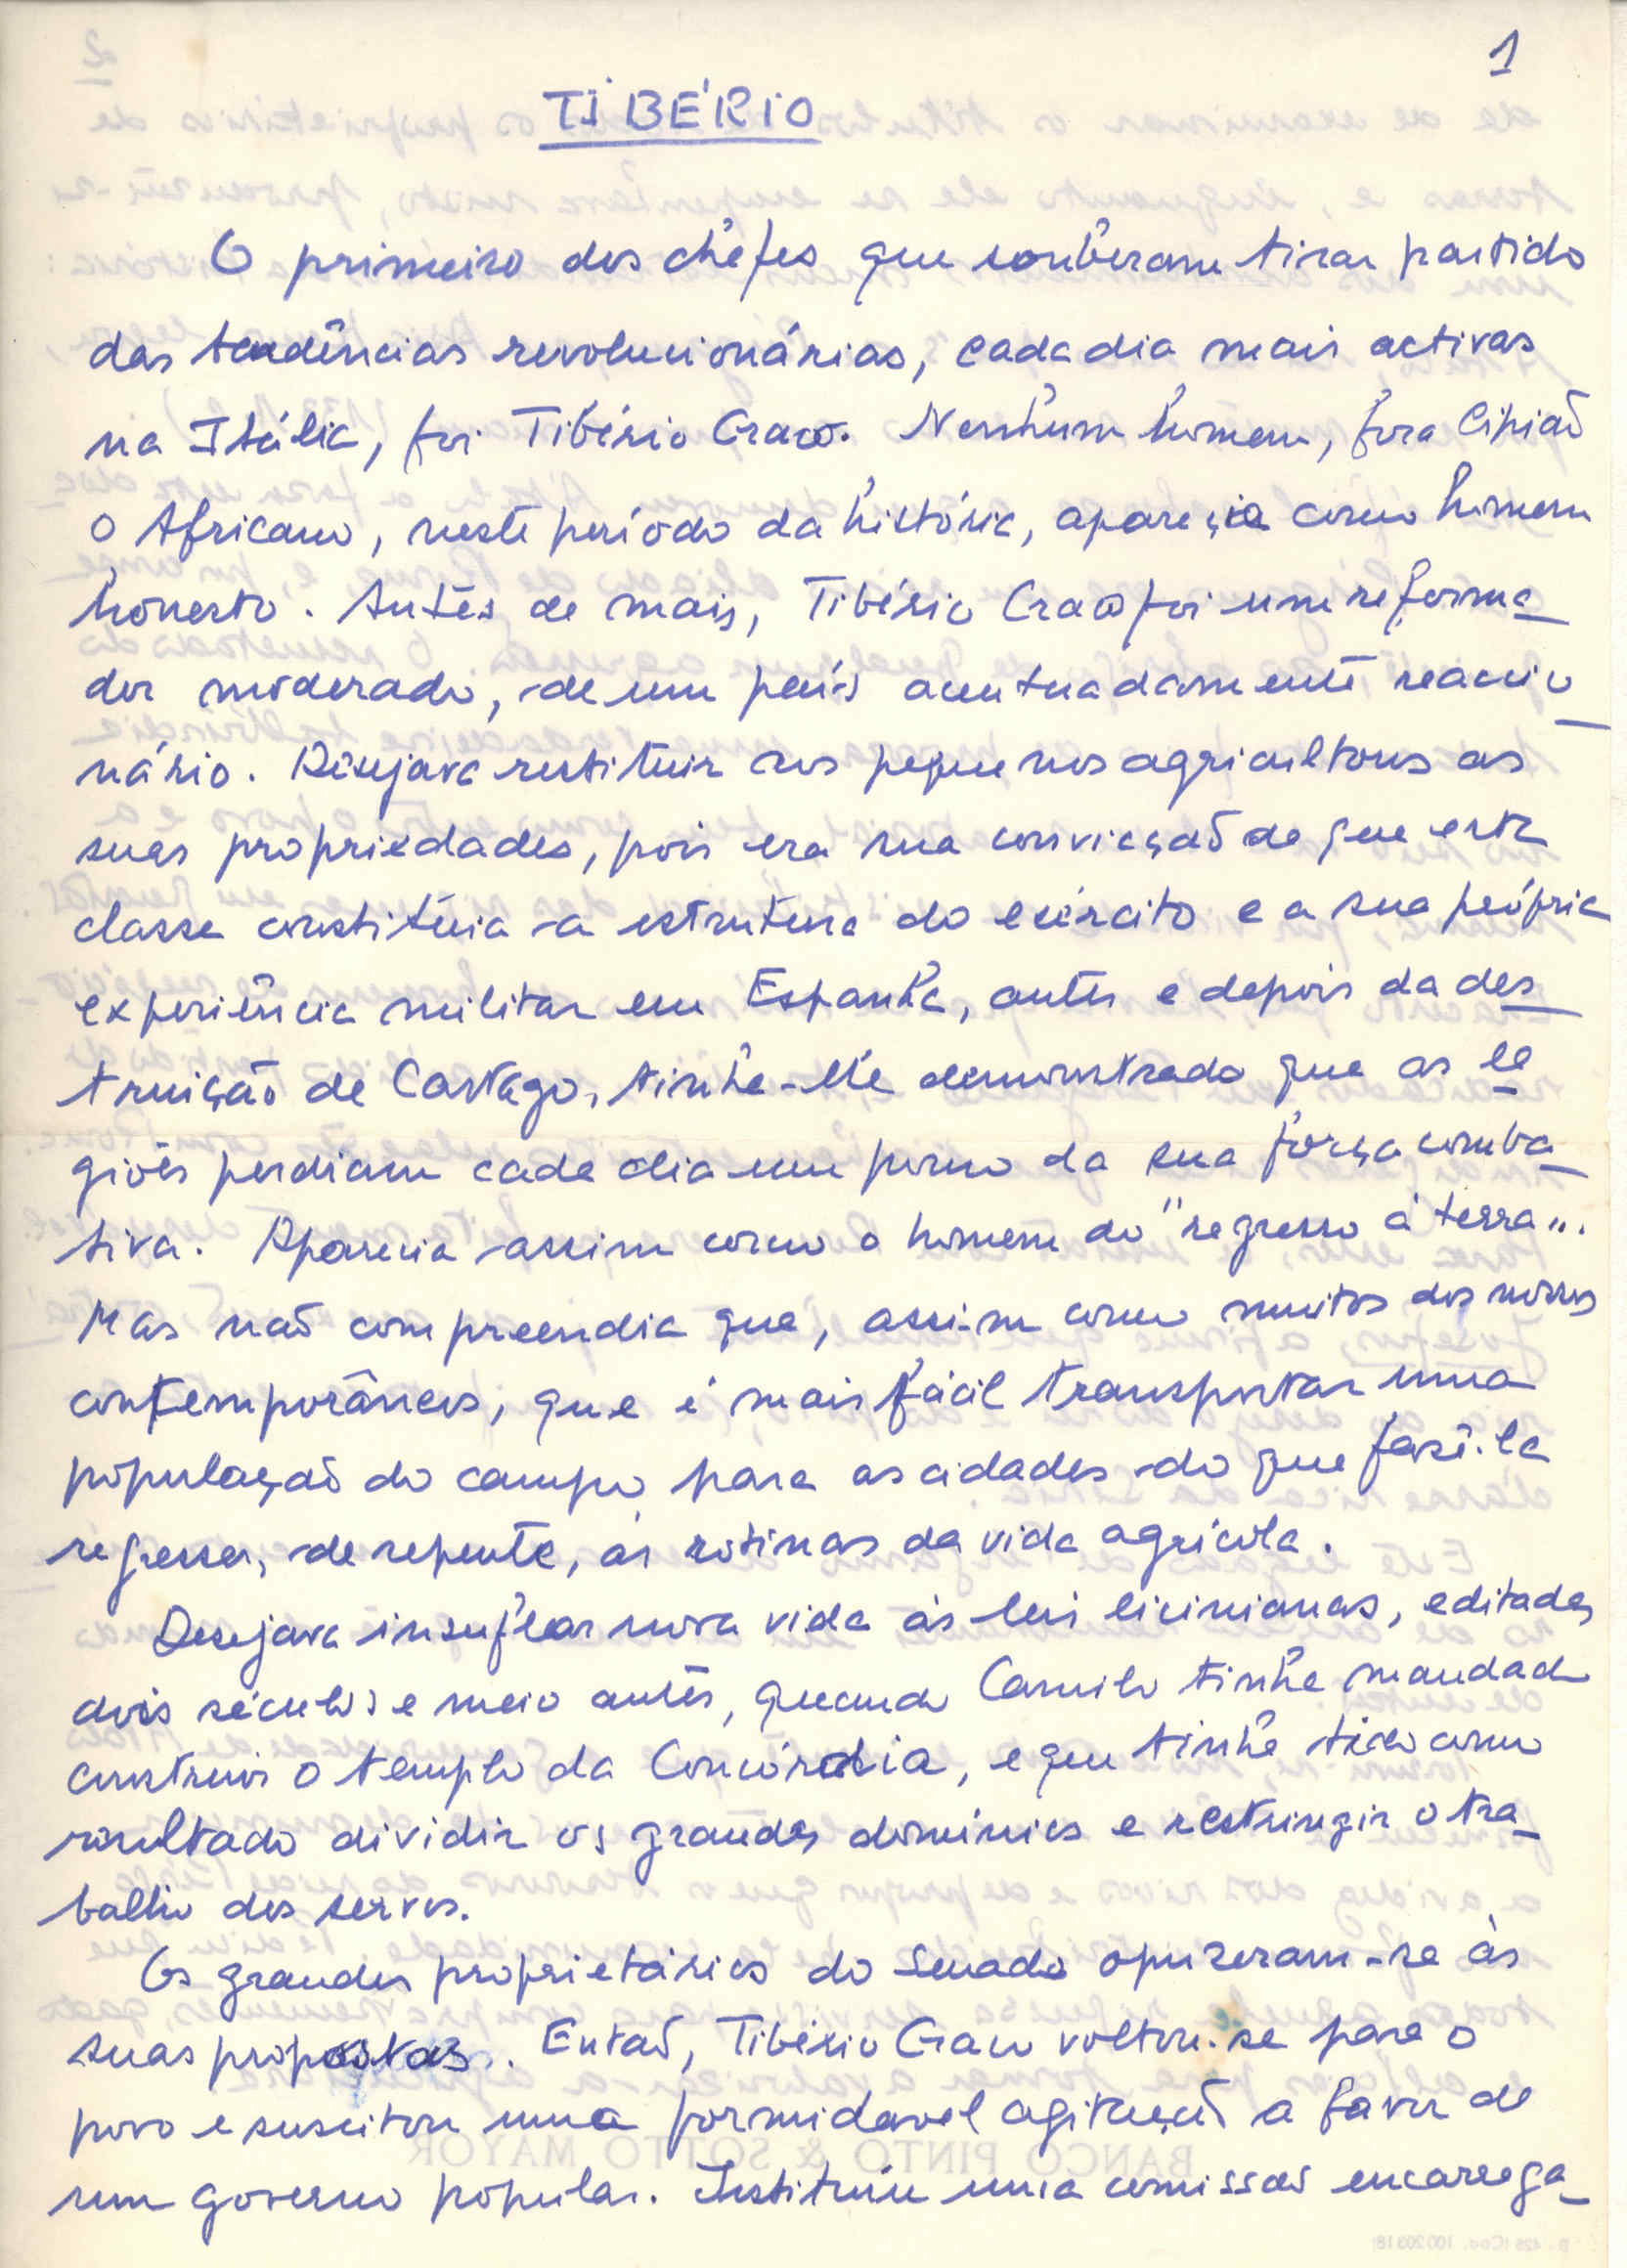 1
TIBÉRIO
O primeiro dos chefes que souberam tirar partido
das tendências revolucionárias, cada dia mais activas
na Itália, foi Tibério Graco. Nenhum homem, fora Cipião
o Africano, neste período da história, aparecia como homem
honesto. Antes de mais, Tibério Graco foi um reforma_
dor moderado, de um país acentuadamente reaccio_
nário. Desejava restituir aos pequenos agricultores as
suas propriedades, pois era sua convicção de que esta
classe constituia a estrutura do exército e a sua própria
experiência militar em Espanha, antes e depois da des_
truição de Cartago, tinha-lhe demonstrado que as le_
giões perdiam cada dia um pouco da sua força comba_
tiva. Aparecia assim como o homem do "regresso à terra".
Mas não compreendia que, assim como muitos dos nossos
contemporâneos, que é mais fácil transportar uma
população do campo para as cidades do que fazê-la
regressar, de repente, às rotinas da vida agrícola.
Desejava insuflar nova vida às leis licinianas, editadas
dois séculos e meio antes, quando Camilo tinha mandado
construir o templo da Concórdia, e que tinha tido como
resultado dividir os grandes domínios e restringir o tra_
balho dos servos.
Os grandes proprietários do Senado opuseram-se às
suas propostas. Então, Tibério Graco voltou-se para o
povo e suscitou uma formidavel agitação a favor de
um governo popular. Instituiu uma comissão encarrega_
BANCO PINTO & SOTTO MAYOR